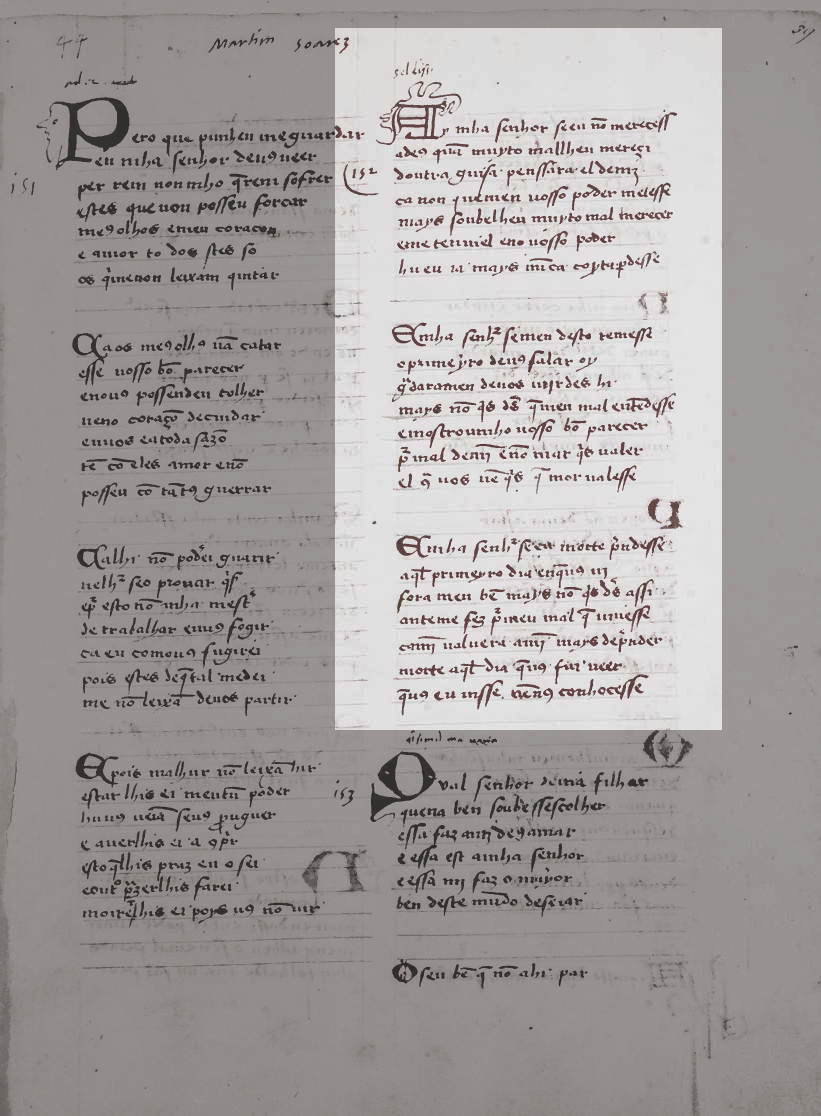 44 Martim Soarez
Pero que punhey me guardar
eu mha senhor deus ueer
per rem non mho q̄rem sofrer
estes que non posseu forcar
me9 olhos e meu coraçon
e amor to dos stes so
os q̄ menon leixam quitar
Ca os me9 olh9 uā catar
esse uosso bō parecer
eno u9 possenden tolher
neno coraçō de cuidar
en uos e a toda sazō
tē cō eles amor e nō
posseu cō tāt9 guerrar
Ca lhi nō poder guarir
nelh² seo prouar q̄s
ep̄ esto nō mha mest
de trabalhar en u9 fogir
ca eu como u9 fugirei
pois estes de q̄ tal medei
me nō leixā deuos partir
E pois malhur nō leixā hir
estar lhis ei mentū poder
hu u9 ueiā seu9 prūguer
e auerlhis ei a gr̄
esto q̄lhis praz eu o sei
e out° p̄zer lhis farei
moirer lhis ei poys u9 nō uir
151
152
Ay mha senhor se eu nō merecess
ade9 quā muyto mallheu mereci
doutra guisa penssara el demī
ca non q̄ men en uosso poder metesse
mays soubelheu muyto mal merecer
e meteu mel eno uosso poder
hu eu ia mays nūca coyta p̄desse
E mha senh² se men desto temesse
o primeyro deu9 falar oy
g̃daramen deuos uijr des hi
mays nō q̄s d̄s q̄ men mal entēdesse
e mostroumho uosso bō parecer
p̄ mal demī e nō mar q̄s ualer
el 9̄ uos nē q̄s q̄ mor ualesse
E mha senh² se eu morte p̄ndesse
aq̄l primeyro dia en q̄ u9 ui
fora meu bē mays nō q̄s d̄s assi
ante me fez p̄ meu mal q̄ uiuesse
ca mī ualuera a mī mays de p̄nder
morte aq̄l dia q̄ u9 fui ueer
q̄ u9 eu uisse nen u9 conhocesse
153
Qval senhor deuia filhar
quena ben soubessescolher
essa faz amī de9 amar
e essa est a mha senhor
e essa mj faz o mayor
ben deste mūdo deseiar
O seu bē q̄ nō ahi par